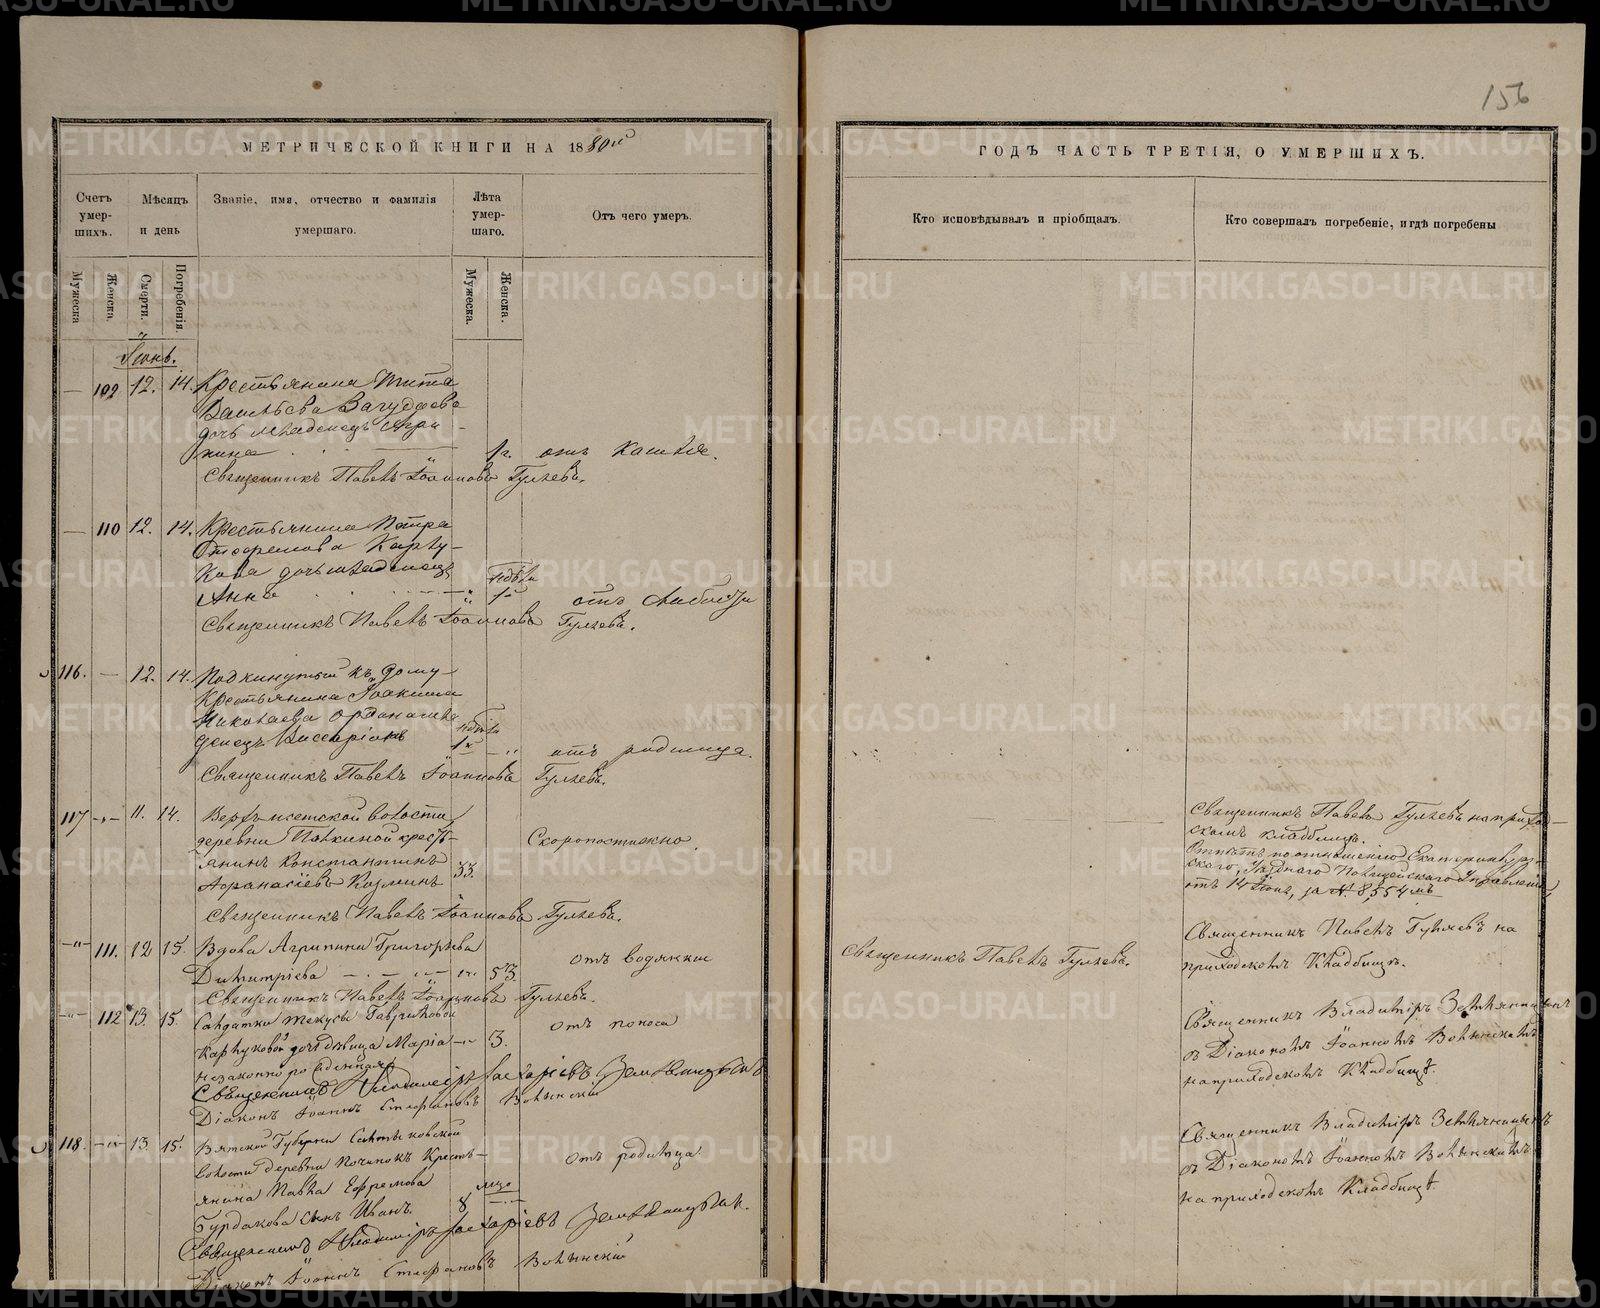 156
МЕТРИЧЕСКОЙ КНИГИ НА 1880й
ГОДЪ ЧАСТЬ ТРЕТІЯ, О УМЕРШИХЪ.
Счетъ умер-шихъ.
Мѣсяцъ и день
Званіе, имя, отчество и фамилія умершаго.
Лѣта умер-шаго.
Отъ чего умеръ.
Кто исповѣдывалъ и пріобщалъ.
Кто совершалъ погребеніе, и гдѣ погребены
Мужеска
Женска.
Смерти.
Погребенія.
Мужеска.
Женска.
Іюнь.
— 109 12. 14. Крестьянина Тита
Васильева
дочь младенецъ Ири-
нина 1 г. отъ кашля.
Священникъ Павелъ Іоанновъ Гуляевъ.
— 110 12. 14. Крестьянина Петра
Карпу-
кова дочь младенецъ
Анна отъ слабости
Священникъ Павелъ Іоанновъ Гуляевъ.
116. — 12. 14. Подкинутый къ дому
Крестьянина Іоакима
Николаева
отъ родимца.
Священникъ Павелъ Іоанновъ Гуляевъ.
117 —„— 11. 14. Верхъ-исетской волости
деревни Палкиной кресть-
янинъ Константинъ
Афанасіевъ Козминъ 33. Скоропостижно.
Священникъ Павелъ Іоанновъ Гуляевъ.
Священникъ Павелъ Гуляевъ на приход-
скомъ кладбищѣ.
Отпѣтъ по отношенію Екатеринбург-
скаго Уѣзднаго Полицейскаго Управленія
отъ 14 Іюня, за № 8554мъ
—„— 111. 12 15. Вдова Агрипина Григорьева
Димитріева 53 отъ водянки
Священникъ Павелъ Іоанновъ Гуляевъ.
Священникъ Павелъ Гуляевъ.
Священникъ Павелъ Гуляевъ на
приходскомъ Кладбищѣ.
—„— 112 13. 15. Солдатки Гавриловой
Карпуковой дочь дѣвица Марія 3. отъ поноса
незаконнорожденная
Священникъ Владиміръ Захаріевъ Земляницынъ
Діаконъ Іоаннъ Стефановъ Волынскій
Священникъ Владиміръ Земляницынъ
съ Діакономъ Іоанномъ Волынскимъ
на приходскомъ Кладбищѣ.
118. —„— 13. 15. Вятской Губерніи
волости деревни Починокъ Кресть-
янина Павла Ефремова
Бурдакова сынъ Иванъ. 8 мцо отъ родимца.
Священникъ Владиміръ Захаріевъ Земляницынъ.
Діаконъ Іоаннъ Стефановъ Волынскій
Священникъ Владиміръ Земляницынъ
съ Діакономъ Іоанномъ Волынскимъ
на приходскомъ Кладбищѣ.
METRIKI.GASO-URAL.RU